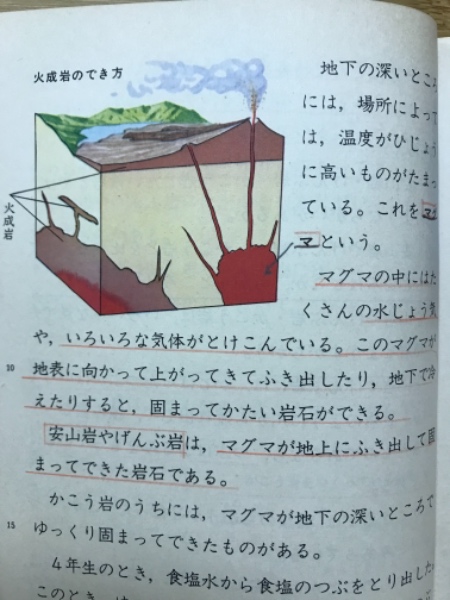 火成岩のでき方
火成岩
地下の深いところ
には，場所によって
は，温度がひじょう
に高いものがたまっ
ている。これをマグ
マという。
マグマの中にはた
くさんの水じょう気
や，いろいろな気体がとけこんでいる。このマグマが
10 地表に向かって上がってきてふき出したり，地下で冷
えたりすると，固まってかたい岩石ができる。
安山岩やげんぶ岩は，マグマが地上にふき出して固
まってできた岩石である。
かこう岩のうちには，マグマが地下の深いところで
15 ゆっくり固まってできたものがある。
4年生のとき，食塩水から食塩のつぶをとり出した
このとき，